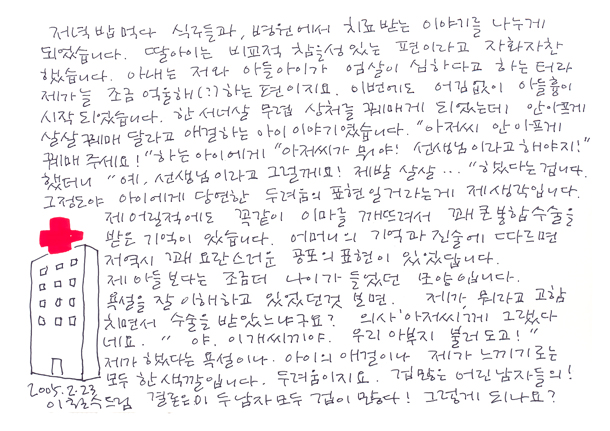 저녁밥먹다 식구들과, 병원에서 치료받는 이야기를 나누게
되었습니다. 딸아이는 비교적 참을성있는 편이라고 자화자찬
했습니다. 아내는 저와 아들아이가 엄살이 심하다고 하는터라
제가늘 조금 억울해(?)하는편이지요. 이번에도 어김없이 아들흉이
시작되었습니다. 한 서너살 무렵 상처를 꿰매게 되었는데 안아프게
살살 꿰매 달라고 애걸하는 아이이야기였습니다. "아저씨 안아프게
꿰매 주세요!"하는아이에게 "아저씨가 뭐야! 선생님이라고해야지!"
했더니 "예, 선생님이라고 그럴께요! 제발 살살..." 했다는겁니다.
그정도야 아이에게 당연한 두려움의 표현일거라는게 제생각입니다.
제어릴적에도 꼭같이 이마를 깨뜨려서 꽤큰봉합수술을
받은기억이 있습니다. 어머니의 기억과 진술에 따르면
저역시 꽤 요란스러운 공포의 표현이 있었답니다.
제아들보다는 조금더 나이가 들었던 모양입니다.
욕설을 잘 이해하고 있었던것 보면. 제가 뭐라고 고함
치면서 수술을 받았느냐구요? 의사'아저씨'께 그랬다
네요. "야. 이개씨끼야. 우리아부지 불러도고!"
제가 했다는 욕설이나. 아이의 애걸이나 제가 느끼기로는
모두 한색깔입니다. 두려움이지요. 겁많은 어린남자들의!
결론은이 두남자모두 겁이 많다! 그렇게 되나요?
2005.2.23
이철수드림